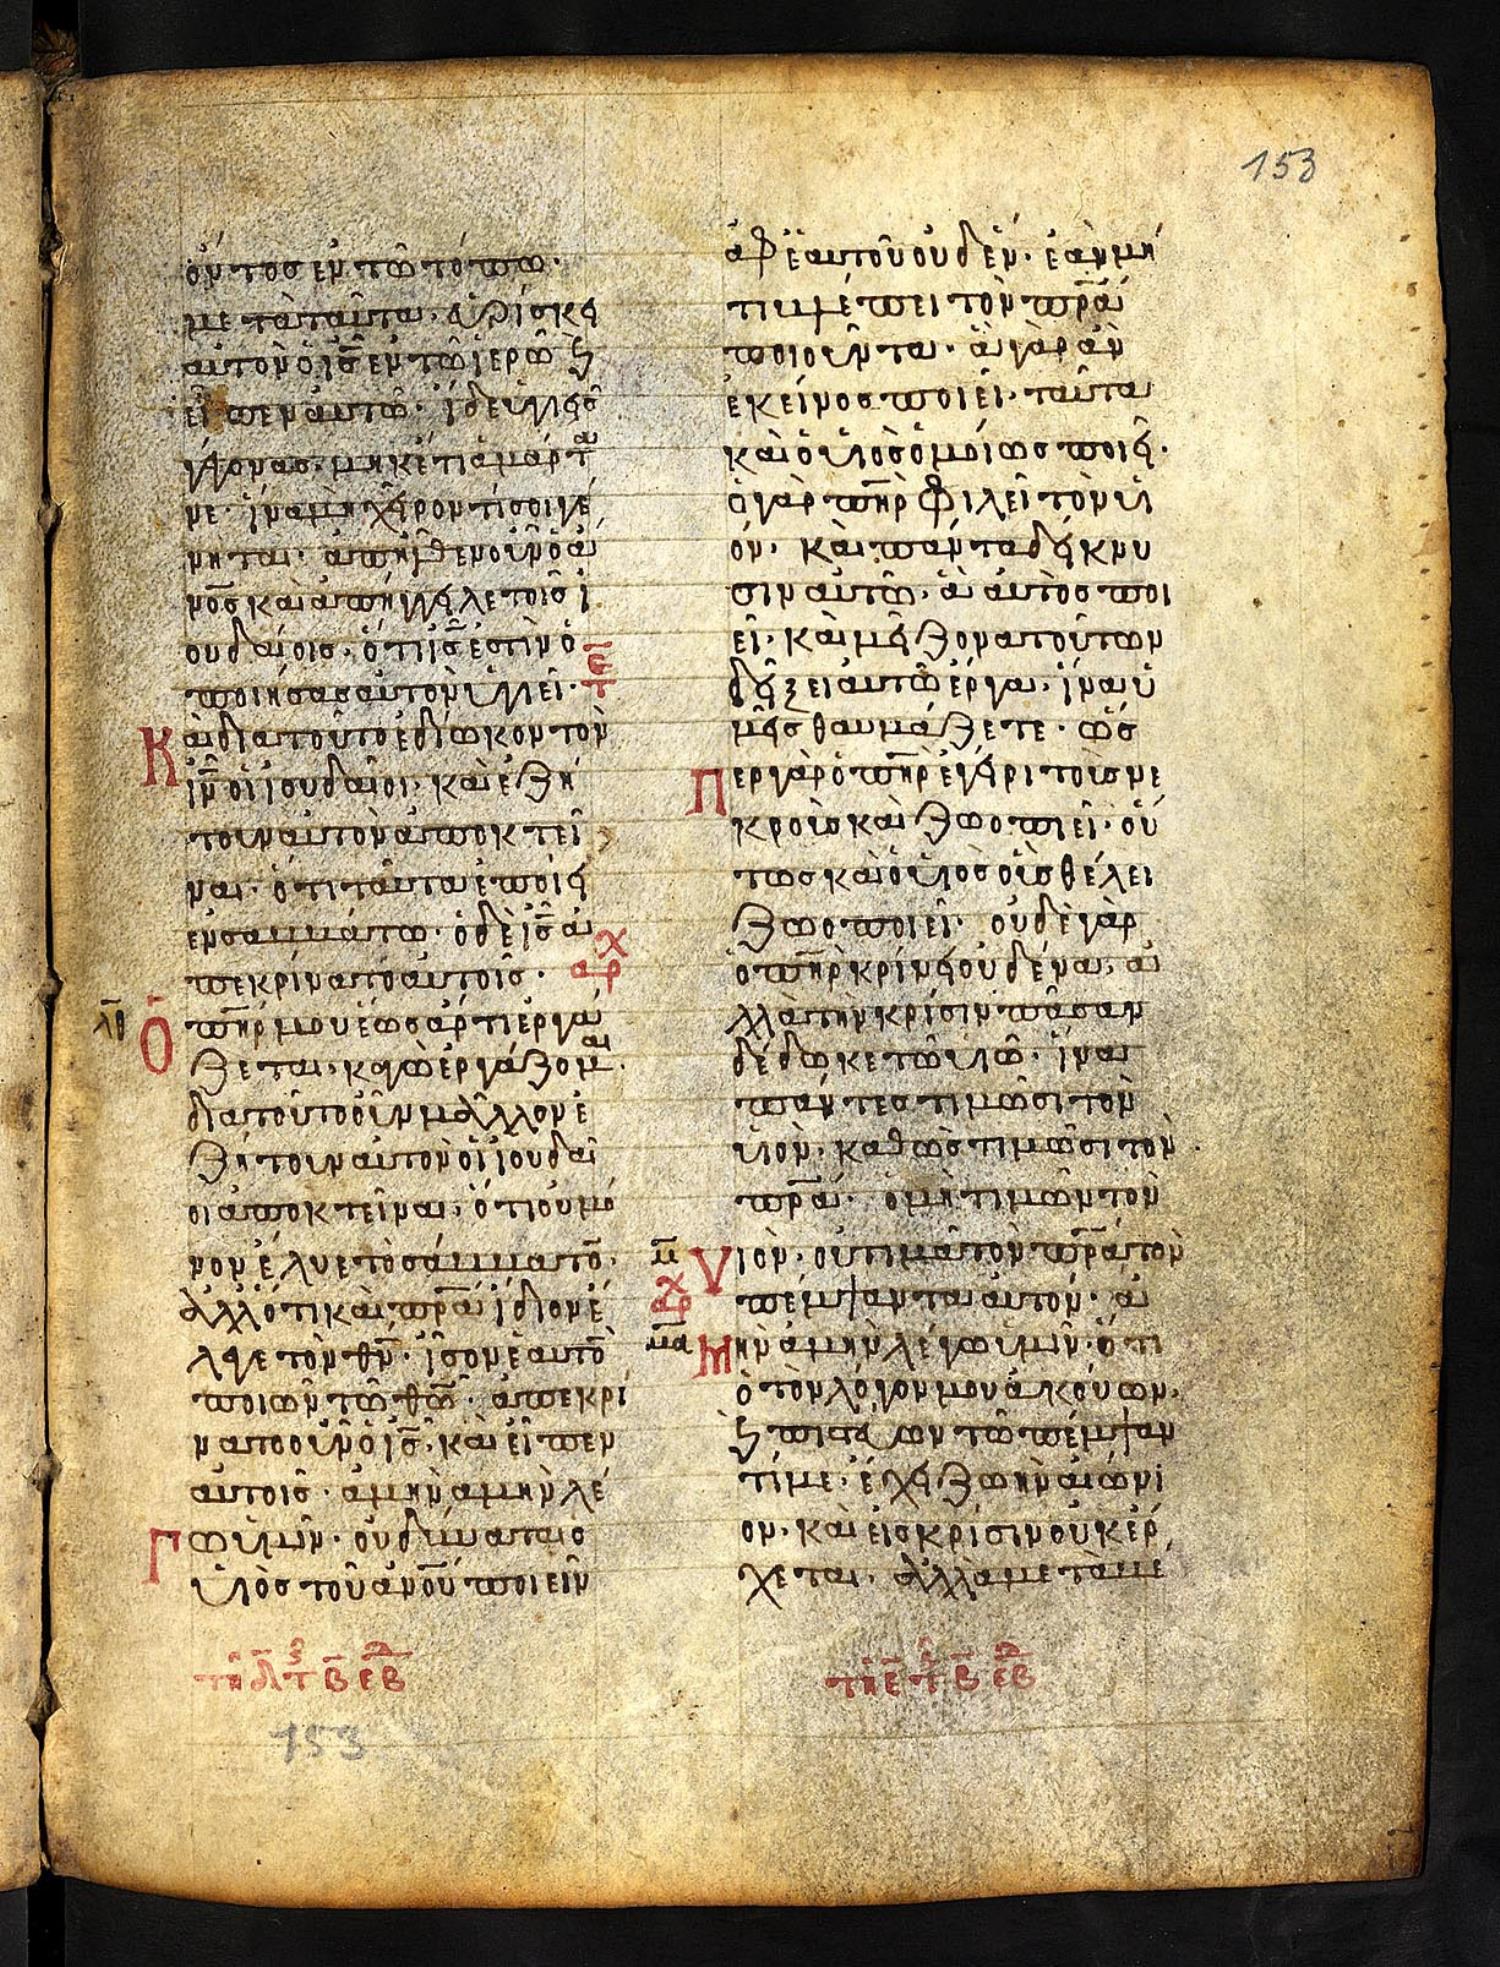 153
ὄντος ἐν τῶ τόπω·
με τὰ ταῦτα· εὑρίσκει
αὐτὸν ὁ ις ἐν τῶ ἱερῶ κ
εἶπεν αὐτῶ· ἴδε ὑγιὴς
γέγονας· μηκέτι ἁμάρτα
νε· ἵνα μὴ χεῖρόν τί σοι γέ
νηται· ἀπῆλθεν οὖν ὁ ἀ
νος καὶ ἀπήγγειλε τοῖς ἰ
ουδαίοις· ὅτι ις ἐστὶν ὁ
ποιήσας αὐτὸν ὑγιεῖ·
Καὶ διατοῦτο ἐδίωκον τὸν
ιν οἱ ἰουδαῖοι· καὶ ἐζή
τουν αὐτὸν ἀποκτεῖ
ναι· ὅτι ταῦτα ἐποίει
ἐν σαββάτω· ὁ δὲ ις ἀ
πεκρίνατο αὐτοῖς·
λθ
Ο πηρ μου ἕως ἄρτι ἐργά
ζεται· καγὼ ἐργάζομαι·
διατοῦτο οὖν μᾶλλον ἐ
ζήτουν αὐτὸν οἱ ἰουδαῖ
οι ἀποκτεῖναι· ὅτι οὐ μό
νον ἔλυε τὸ σάββατον·
ἀλλ ὅτι καὶ πρα ἴδιον ἔ
λεγε τὸν θν· ἴσον ἑαυτὸ
ποιῶν τῶ θω· ἀπεκρί
νατο οὖν ὁ ις· καὶ εἶπεν
αὐτοῖς· ἀμὴν ἀμὴν λέ
Γω ὑμῖν· οὐ δύναται ὁ
υἱὸς τοῦ ἀνου ποιεῖν
τη δ τ β εβ
153
ἀφ ἑαυτοῦ οὐδέν· ἐὰν μή
τι βλέπει τὸν πρα
ποιοῦντα· ἃ γὰρ ἂν
ἐκεῖνος ποιεῖ· ταῦτα
καὶ ὁ υἱὸς ὁμοίως ποιεῖ·
ὁ γὰρ πηρ φιλεῖ τὸν υἱ
όν· καὶ πάντα δείκνυ
σιν αὐτῶ· ἃ αὐτὸς ποι
εῖ· καὶ μείζονα τούτων
δείξει αὐτῶ ἔργα· ἵνα ὑ
μεῖς θαυμάζετε· ὥσ
Περ γὰρ ὁ πηρ ἐγείρι τοὺς νε
κροὺς καὶ ζωοποιεῖ· οὕ
τως καὶ ὁ υἱὸς οὓς θέλει
ζωοποιεῖ· οὐδὲ γὰρ
ὁ πηρ κρίνει οὐδένα· ἀ
λλὰ τὴν κρίσιν πᾶσαν
δέδωκε τῶ υἱῶ· ἵνα
πάντες τιμῶσι τὸν
υἱόν· καθὼς τιμῶσι τὸν
πρα· ὁ μὴ τιμῶν τὸν
μ
Υιόν· οὐ τιμᾶ τὸν πρα τὸν
πέμψαντα αὐτόν· ἀ
μα
Μὴν ἀμὴν λέγω ὑμῖν· ὅτι
ὁ τὸν λόγον μου ἀκούων·
κ πιστεύων τῶ πέμψαν
τί με· ἔχει ζωὴν αἰώνι
ον· καὶ εἰς κρίσιν οὐκ ἔρ
χεται· ἀλλὰ μεταβέ
τη ε τ β εβ